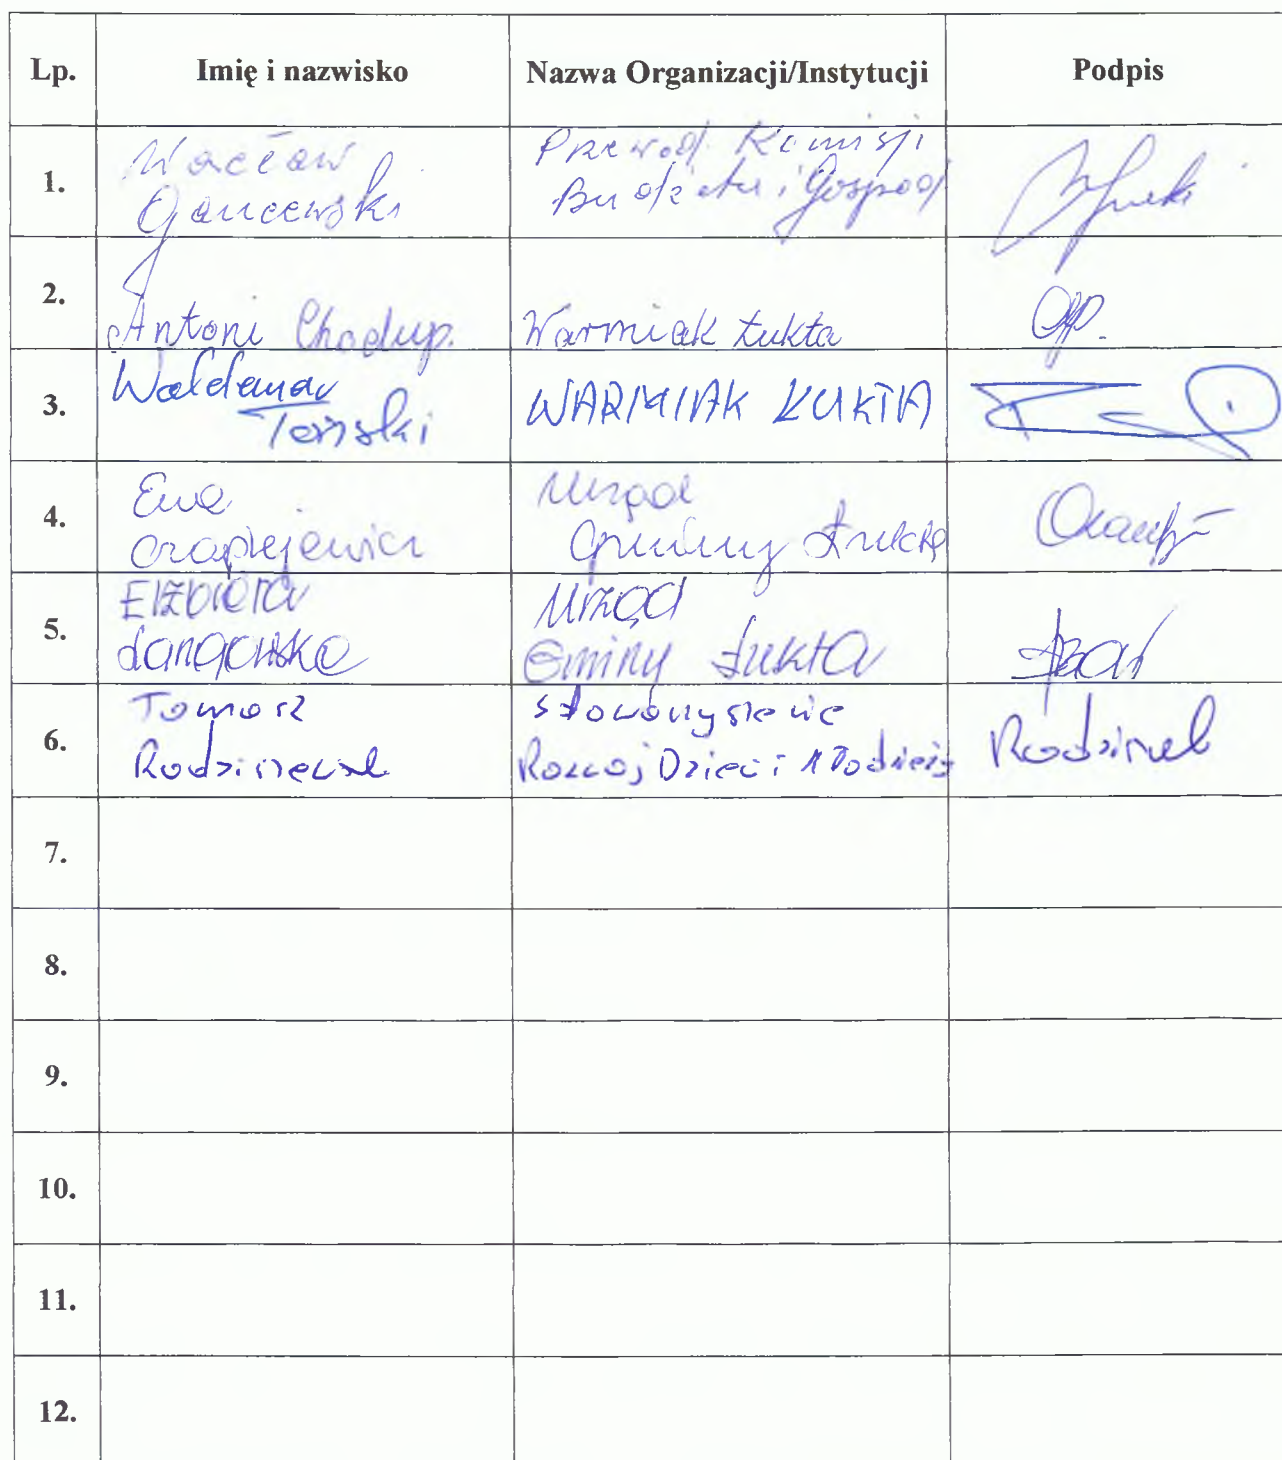 Lp. Imię i nazwisko Nazwa Organizacji/Instytucji Podpis
1. Wacław Przewod. Komisji
Budżetu i Gospod
2. Antoni Chodup. Warmiak Łukta
3. Waldemar WARMIAK ŁUKTA
4. Ewa Urząd
Czaplejewicz Gminy Łukta
5. Elżbieta Urząd
Gminy Łukta
6. Tomasz Stowarzyszenie
Rozwoj Dzieci i Młodzieży
7.
8.
9.
10.
11.
12.